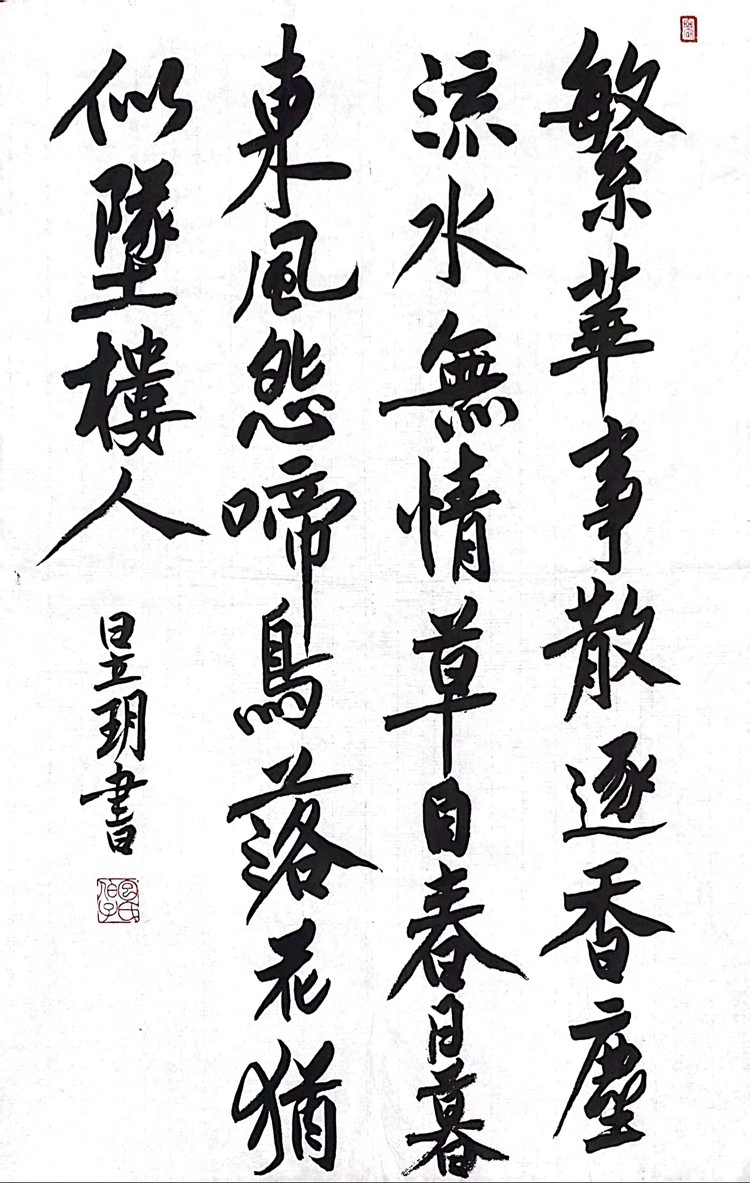 繁華事散逐香塵
流水無情草自春日暮
東風怨啼鳥落花猶
似墜樓人
昱玥書